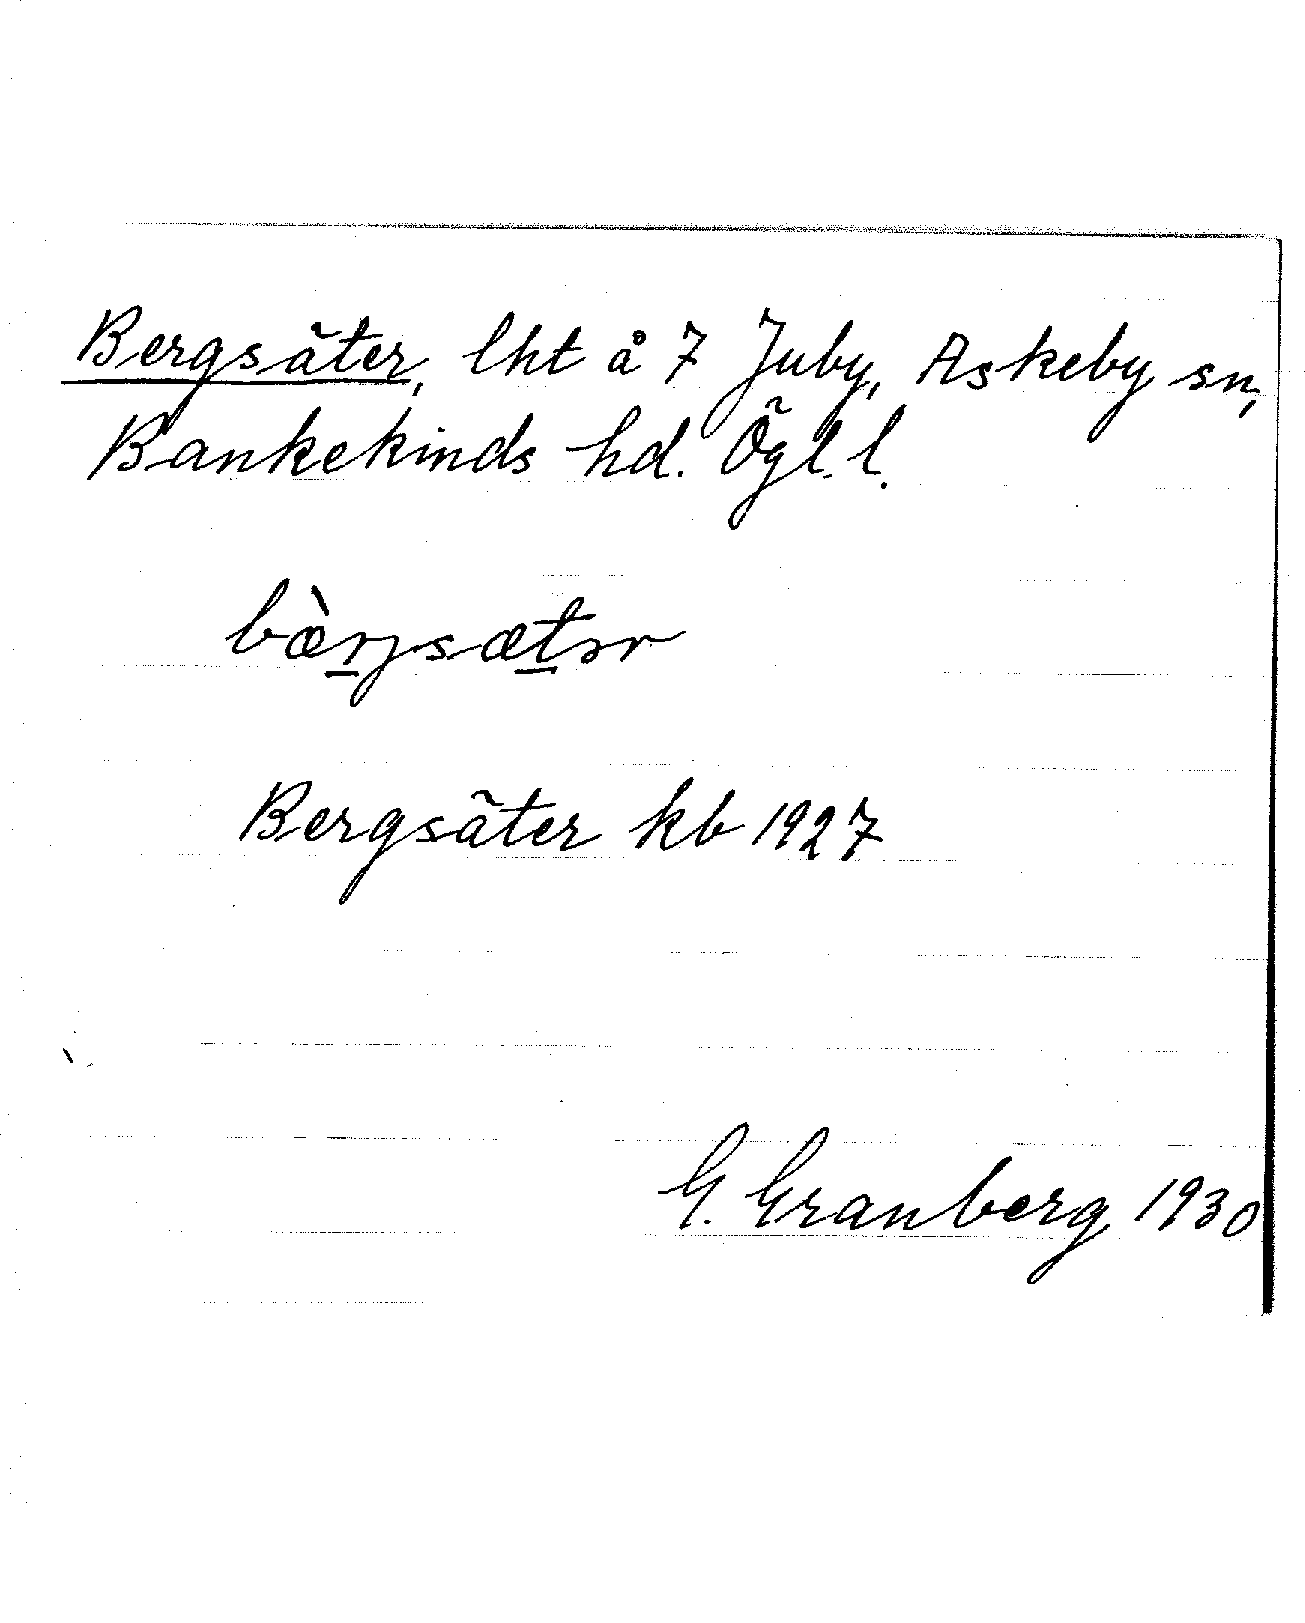 Bergsäter, lht å 7 Juby, Askeby sn,
Bankekinds hd. Ögl. l.
bæ̀r̲jsæt̲ər
Bergsäter kb 1927
G. Granberg 1930